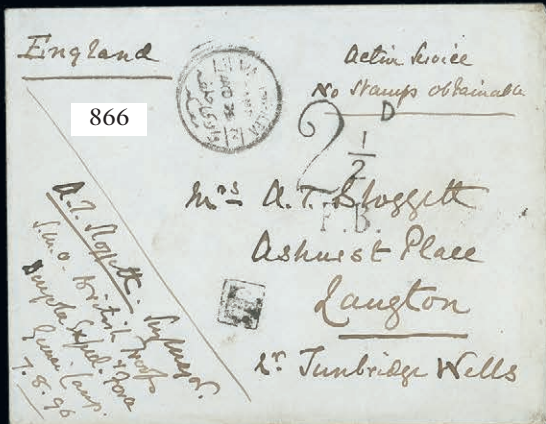 England
Active Service
No Stamps Obtainable
866
D
2 1/2
F.B.
Mrs A. T. Sloggett
Ashurst Place
Langton
Nr Tunbridge Wells
A. T. Sloggett. Surg Major.
S.M.O. British Troops
Dongola Exped. Force
Camp.
7.8.96